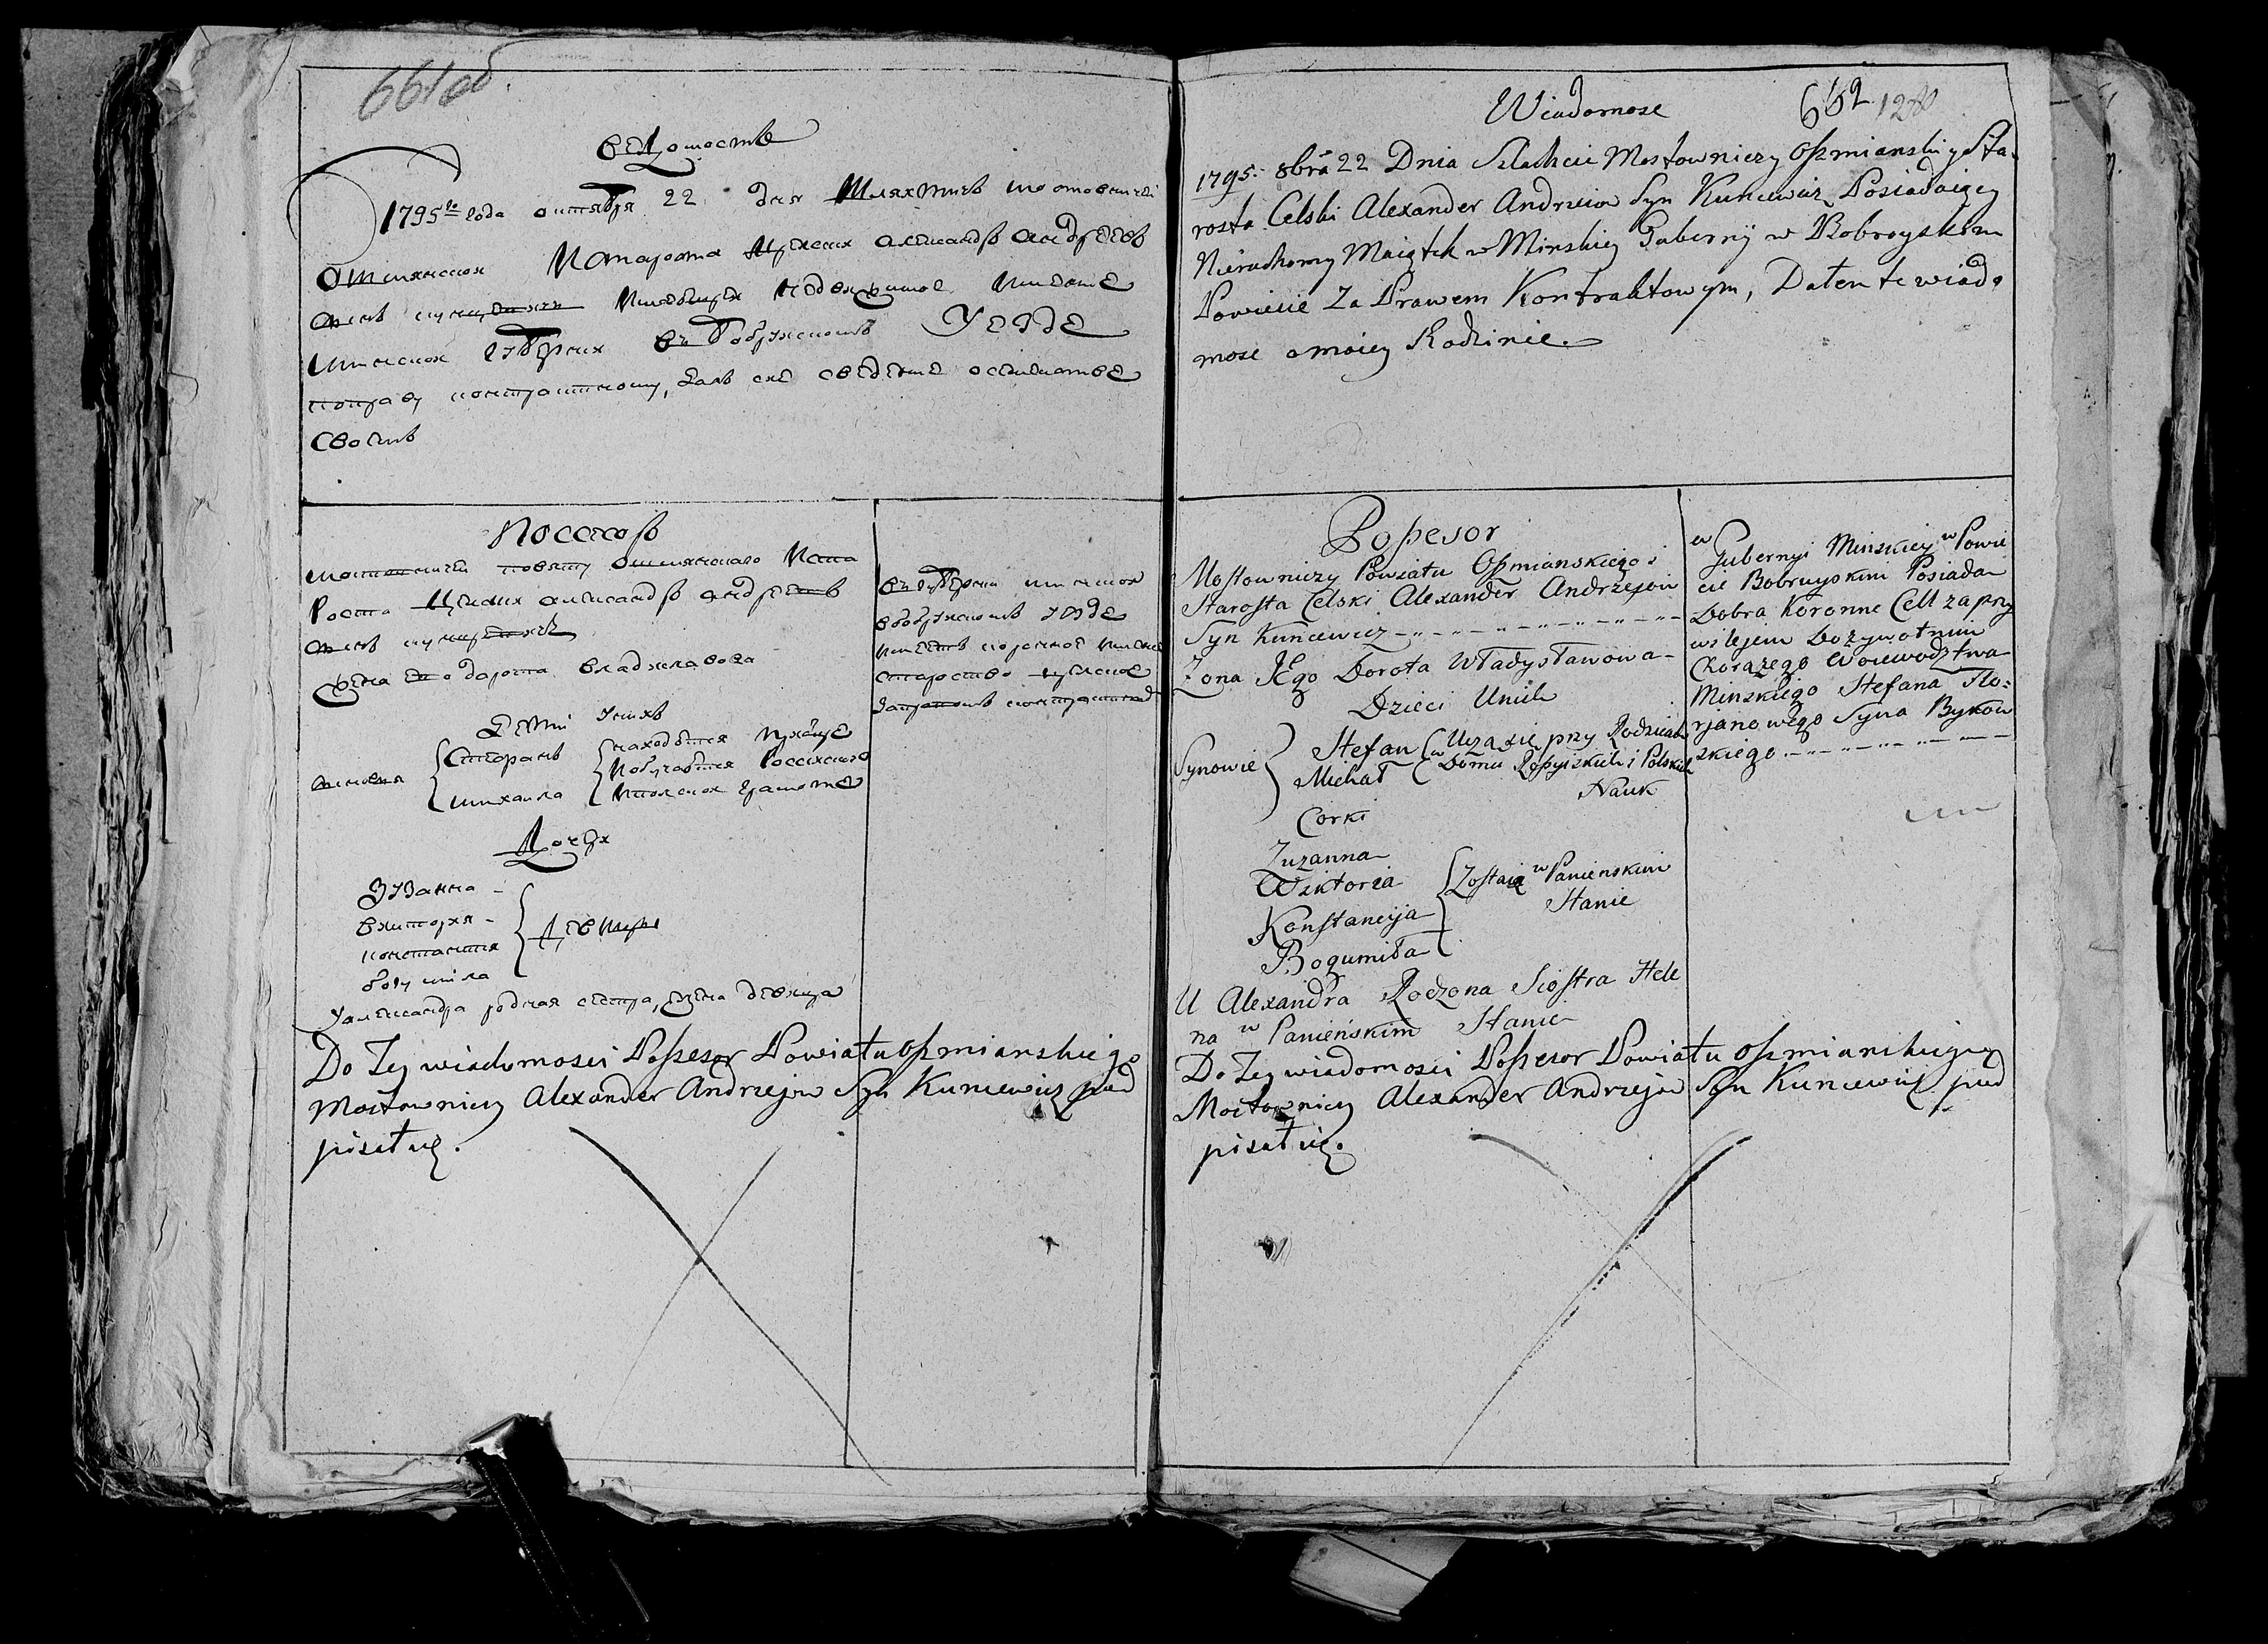 661 об.
Ведомость
1795го года октября 22 дня Шляхтичъ мостовничей
Ошмянской И староста Целский Александръ Андреевъ
сынъ Кунцевичъ Имеющей недвижимое Имение
Минской губернии въ Бобруйскомъ Уезде
по праву контрактному, далъ сие сведение о семействе
своемъ
Посесоръ
мостовничей повяту Ошмянского И ста
роста Целский Александръ Андреевъ
сынъ Кунцевичъ
жена его дорота владиславова
Дети у нихъ
сыновья
Стефанъ
михаила
находятся при отце
И обучаются Российской
И полской грамоте
Дочери
Зузанна -
виктория -
констанция
богумила
девицы
У александра родная сестра, елена девица
въ губернии минской
в бобруйскомъ уезде
имеетъ коронное имение
староство целское
за правомъ контрактнымъ
Do Tey wiadomosci Possesor Powiatu Oszmianskiego
Mostowniczy Alexander Andrzejow Syn Kuncewicz pod
pisał się.
652 1280
Wiadomosc
1795. 8bra 22 Dnia Szlachcic Mostowniczy Oszmianski y Sta
rosta Celski Alexander Andrzeiow Syn Kuncewicz Posiadaiący
Nieruchomy Maiątek w Minskiey Gubernij w Bobroyskim
Powiecie Za Prawem Kontraktowym, Dałem te wiado
mosc o moiey Rodzinie.
Possesor
Mostowniczy Powiatu Oszmianskiego i
Starosta Celski Alexander Andrzejow
Syn Kuncewicz
Zona JEgo Dorota Władysławowa
Dzieci Unich
Synowie
Stefan
Michał
Ucza sie przy Rodzicach
w Domu Rossyiskich i Polskich
Nauk
Corki
Zuzanna
Wiktoria
Konstancyja
Bogumiła
Zostaią w Panienskim
Stanie
U Alexandra Rodzona Siostra Hele
na w Panieńskim Stanie
w Gubernyi Minskiey w Powie
cie Bobruyskim Posiada
Dobra Koronne Cell za przy
wilejem Dożywotnim
Chorążego Woiewodztwa
Minskiego Stefana Flo=
rjanowego Syna Bykow
skiego
Do Tey wiadomosci Possesor Powiatu Oszmianskiego
Mostowniczy Alexander Andrzejow Syn Kuncewicz pod
pisał się.